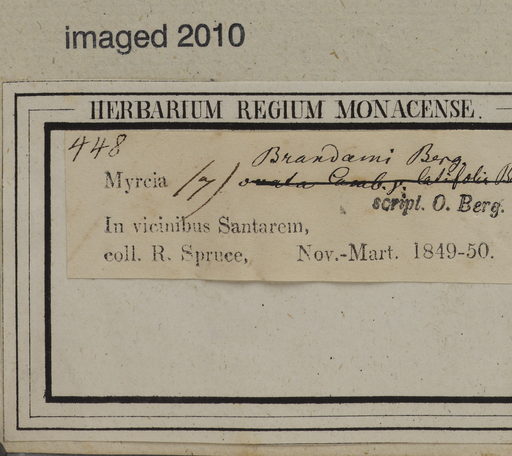 imaged 2010
HERBARIUM REGIUM MONACENSE.
448
Brandami Berg
Myrcia (7) ovata Camb. γ. latifolia B
script. O. Berg.
In vicinibus Santarem,
coll. R. Spruce, Nov.-Mart. 1849-50.